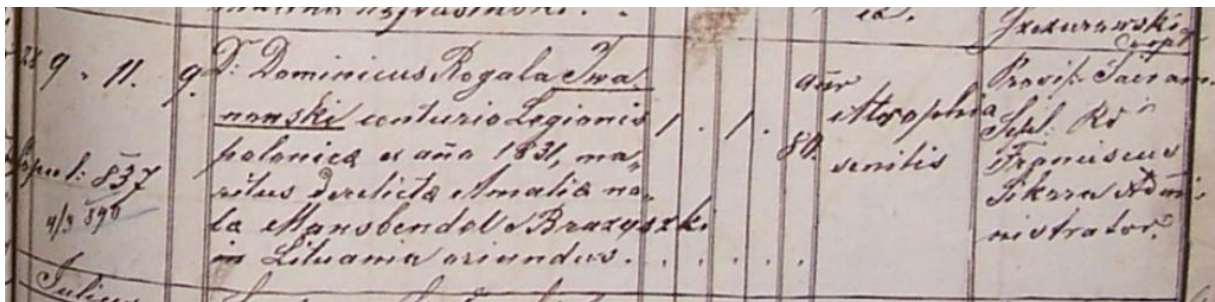 28 9 11. 9. D: Dominicus Rogala Iwa-
nowski centurio Legionis 1 . 1 .
polonicæ ex año 1831, ma-
ritus derelictæ Amaliæ na-
ta Mansbendel e Brazyszki
in Lituania oriundus.
837
4/3 890
añor
80.
Atrophia
senilis
Provis: Sacram.
Sepel: Rs
Franciscus
Sikora Admi-
nistrator.
Julius